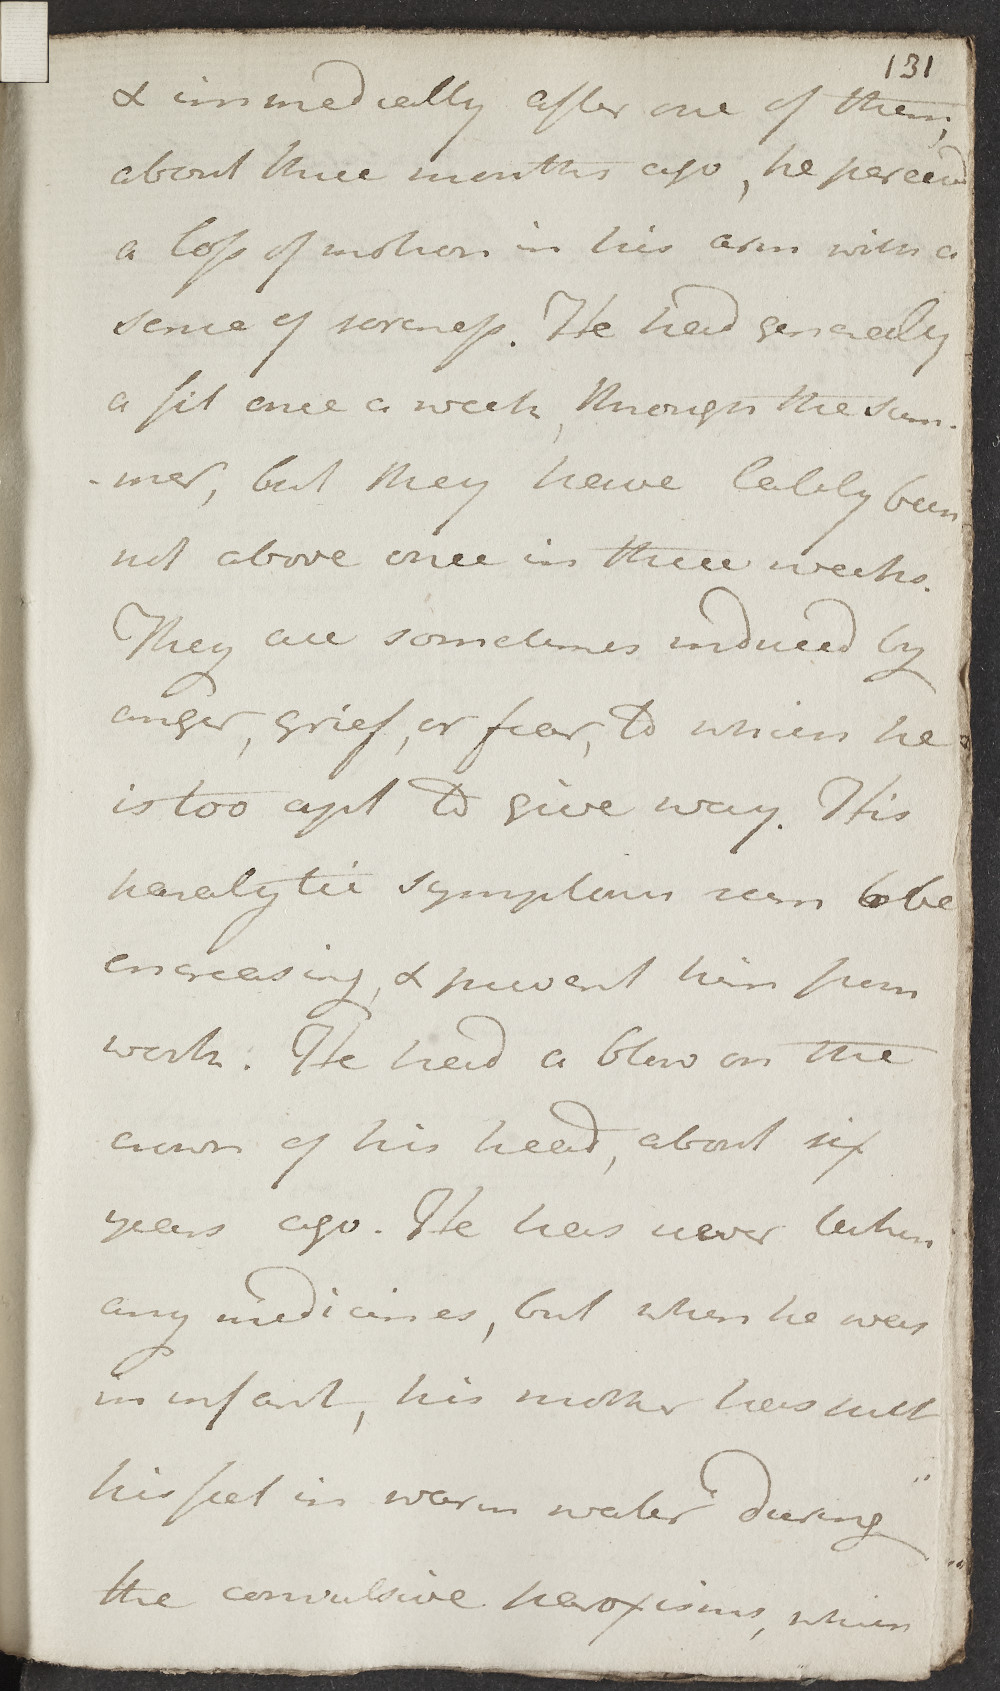 131
& immediately after one of them,
about three months ago, he perceived
a loss of motion in his arm with a
sense of soreness. He had generally
a fit once a week, through the sum-
-mer, but they have lately been
not above once in three weeks.
They are sometimes induced by
anger, grief, or fear, to which he
is too apt to give way. His
paralytic symptoms seem to be
encreasing, & prevent him from
work. He had a blow on the
crown of his head, about six
years ago. He has never taken
any medicines, but when he was
an infant, his mother has put
his feet in warm water during
the convulsive paroxisms, which